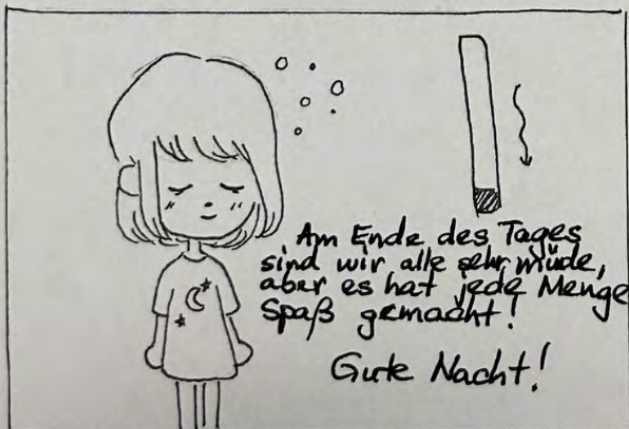 Am Ende des Tages
sind wir alle sehr müde,
aber es hat jede Menge
Spaß gemacht!
Gute Nacht!